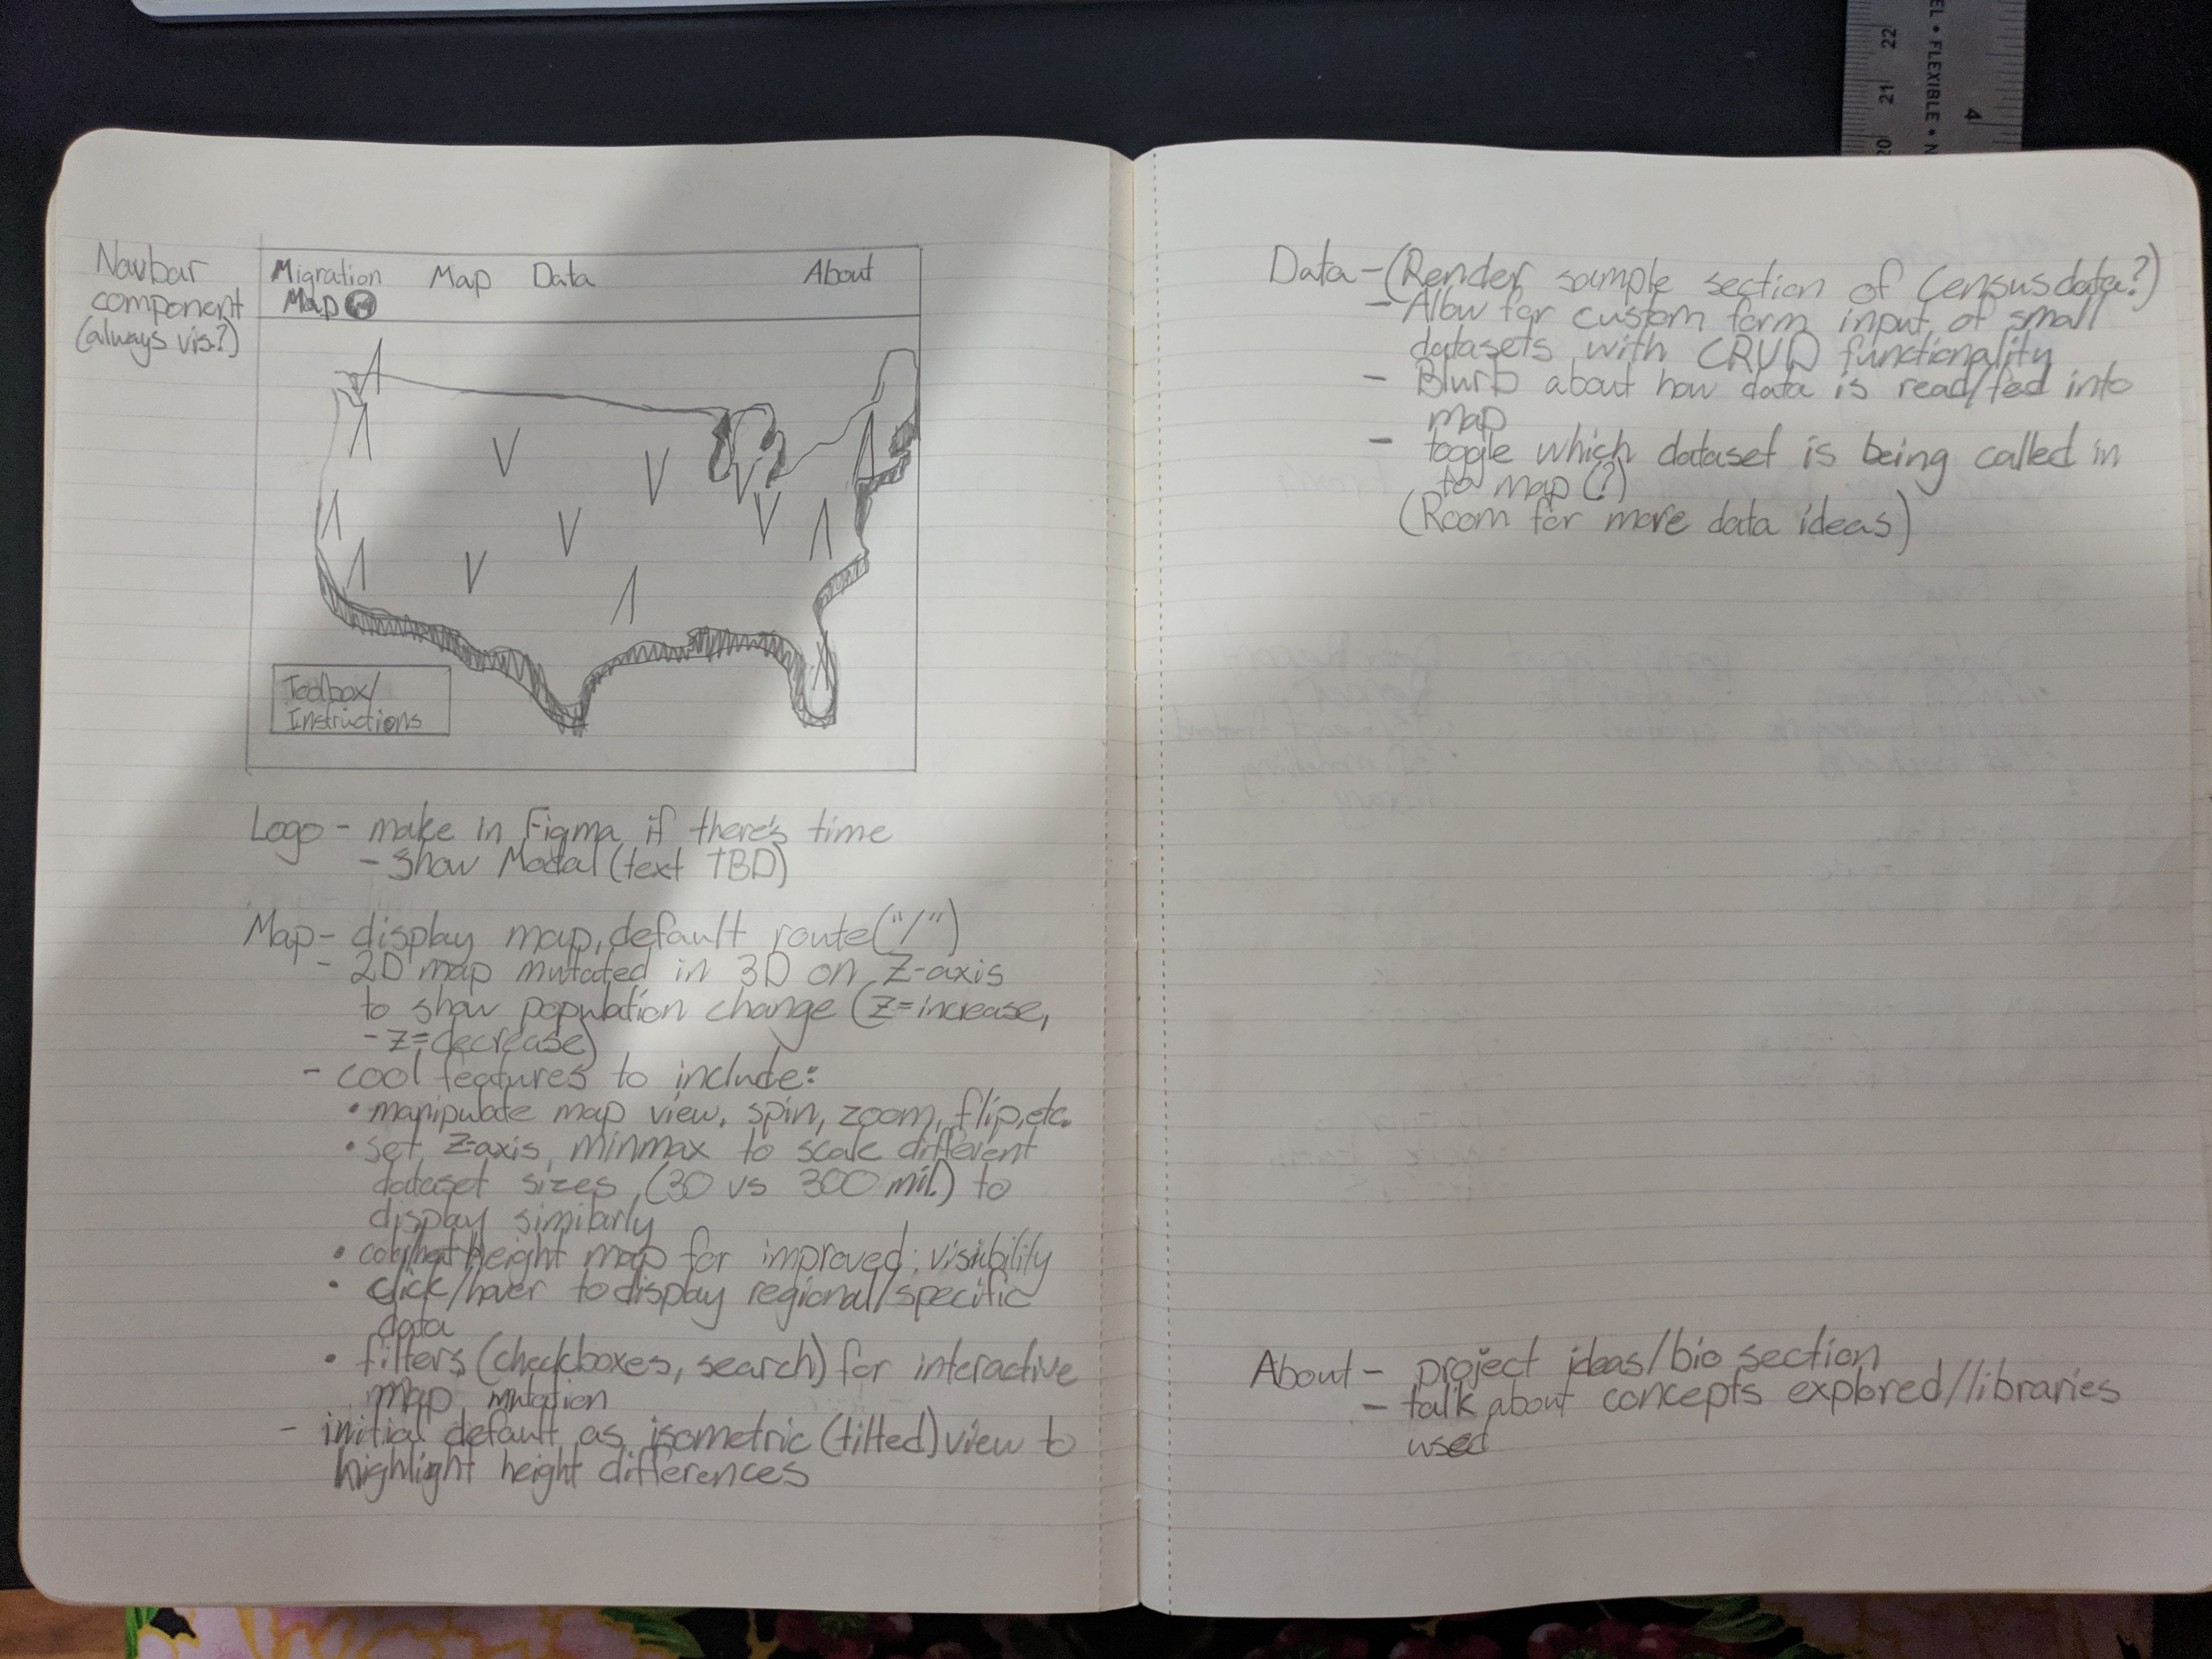 Navbar
component
(always vis.?)
Migration
Map
Map
Data
About
Toolbox/
Instructions
Logo - make in Figma if there's time
- Show Modal (text TBD)
Map - display map, default route ("/")
- 2D map mutated in 3D on Z-axis
to show population change (z=increase,
-z=decrease)
- cool features to include:
• manipulate map view, spin, zoom, flip, etc.
• set Z-axis minmax to scale different
dataset sizes (30 vs 300 mil.) to
display similarly
• height map for improved visibility
• click/hover to display regional/specific
data
• filters (checkboxes, search) for interactive
map mutation
- initial default as isometric (tilted) view to
highlight height differences
Data - (Render sample section of Census data?)
- Allow for custom form input of small
datasets with CRUD functionality
- Blurb about how data is read/fed into
map
- toggle which dataset is being called in
to map (?)
(Room for more data ideas)
About - project ideas/bio section
- talk about concepts explored/libraries
used
EL • FLEXIBLE • N
22
21
20
4